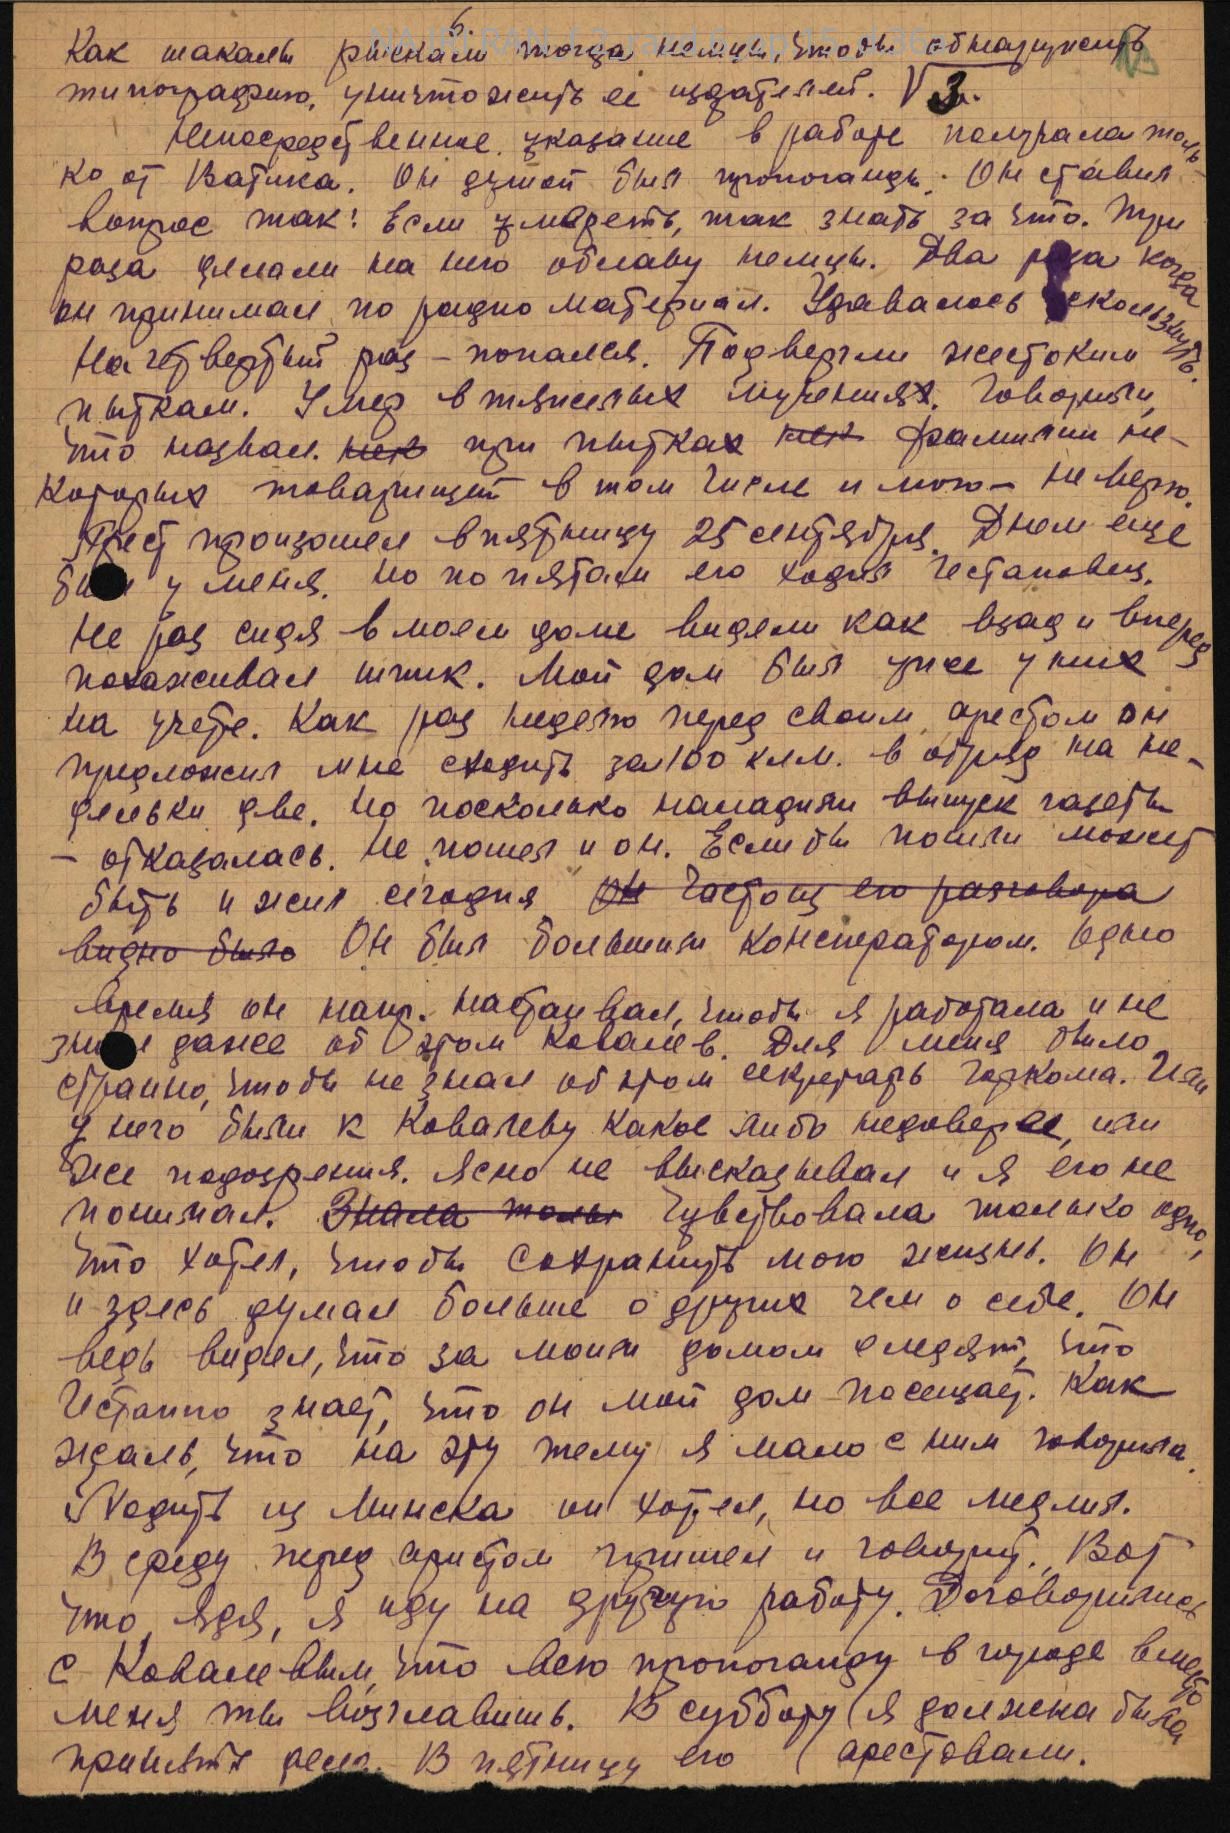 6
Как шакалы рыскали тогда немцы, чтобы обнаружить
типографию, уничтожить её издателей. V 3.
Непосредственное указание в работе получала толь-
ко от Ватика. Он душой был пропоганды. Он ставил
вопрос так: Если умереть, так знать за что. Три
раза делали на него облаву немцы. Два раза когда
он принимал по радио материал. Удавалось ускользнуть.
На четвертый раз – попался. Подвергли жестоким
пыткам. Умер в тяжелых мучениях. Говорили,
что назвал при пытках фамилии не-
которых товарищей в том числе и мою – не верю.
Арест произошел в пятницу 25 сентября. Днем еще
был у меня. Но по пятам его ходил Гестаповец.
Не раз сидя в моем доме видели как взад и вперед
похаживал шпик. Мой дом был уже у них
на учете. Как раз неделю перед своим арестом он
предложил мне сходить за 100 клм. в отряд на не-
дельки две. Но поскольку наладили выпуск газеты
– отказалась. Не пошел и он. Если бы пошли может
быть и жил сегодня Он часто из его разговора
видно было Он был большим консператором. Одно
время он напр. настаивал, чтобы я работала и не
знал даже об этом Ковалев. Для меня было
странно, чтобы не знал об этом секретарь горкома. Или
у него были к Ковалеву какое либо недоверее, или
же подозрения. Ясно не высказывал и я его не
понимал. Знала толь Чувствовала только одно,
что хотел, чтобы сохранить мою жизнь. Он
и здесь думал больше о других чем о себе. Он
ведь видел, что за моим домом следят, что
Гестапо знает, что он мой дом посещает. Как
жаль, что на эту тему я мало с ним говорила.
Уходить из Минска он хотел, но все медлил.
В среду перед арестом пришел и говорит. Вот
что, Ядя, я иду на другую работу. Договорились
с Ковалевым, что всю пропоганду в городе вместо
меня ты возглавишь. В субботу я должна была
принять дела. В пятницу его арестовали.